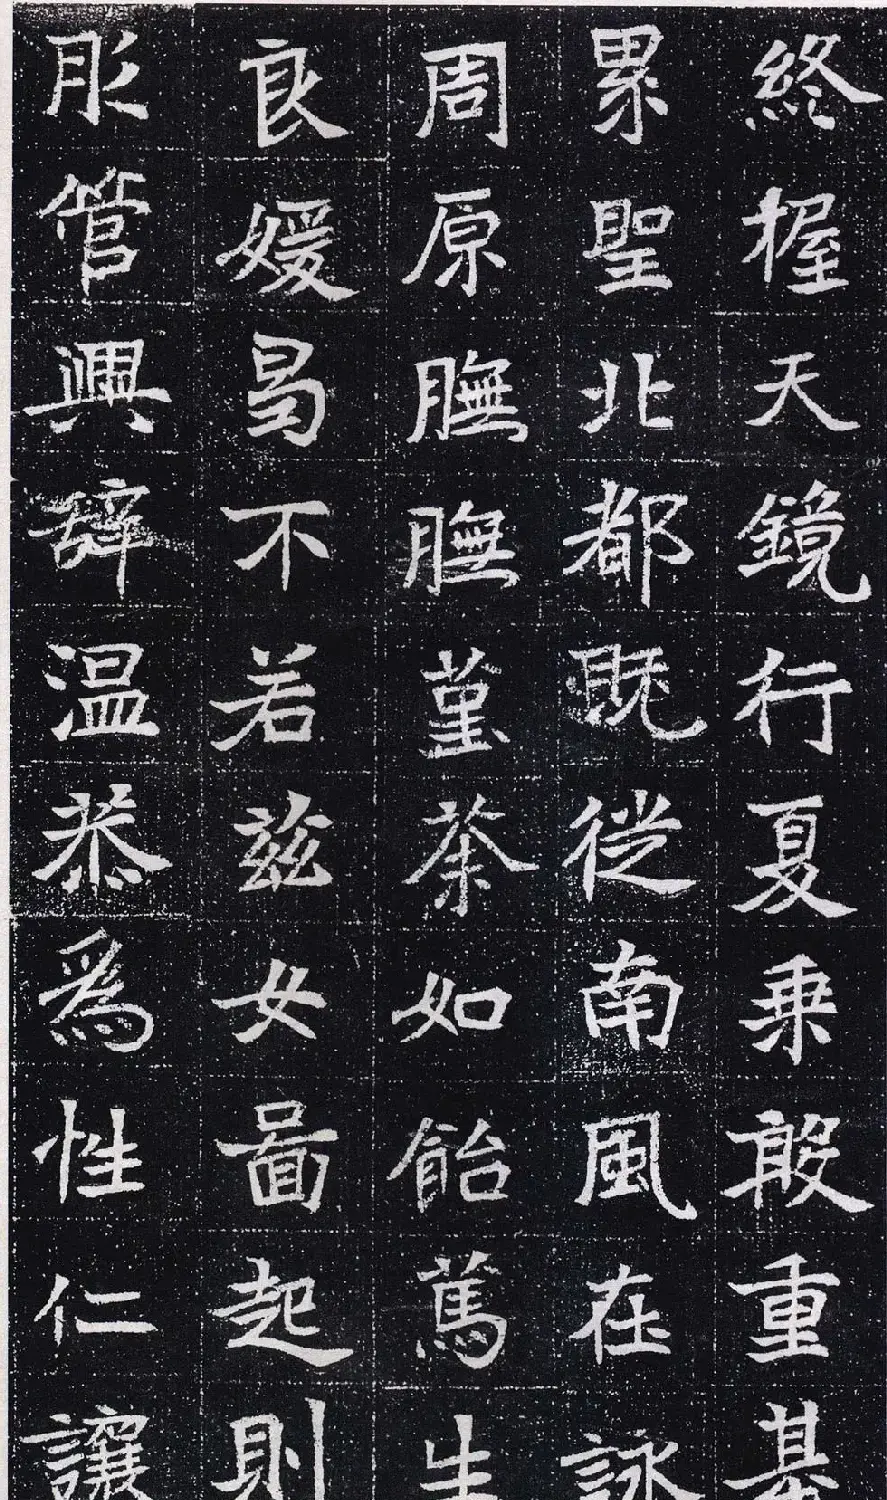 終握天鏡行夏乗敢重基
累聖北都既從南風在詠
周原膴膴菫荼如飴篤生
良媛曷不若兹女圖起則
彤管興辞温恭爲性仁讓